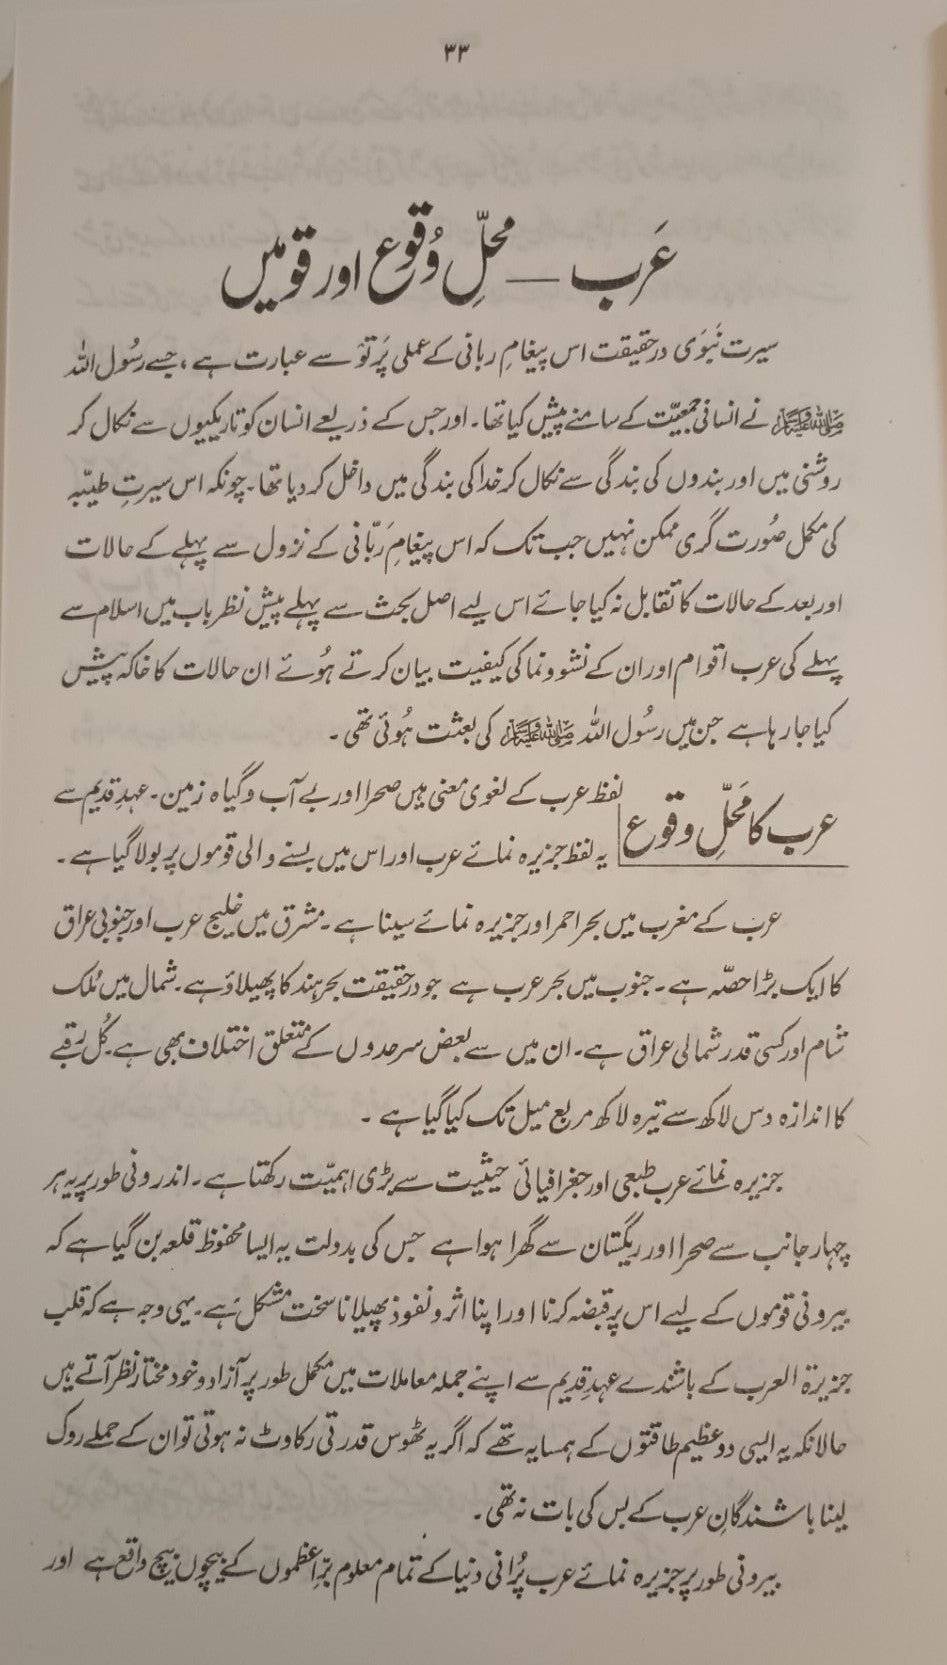 ۳۳
عَرب — محلِّ وُقوع اور قومیں
سیرت نَبَوی درحقیقت اس پیغامِ ربانی کے عملی پَرتَو سے عبارت ہے ، جسے رسُول اللہ
ﷺ نے انسانی جمعیّت کے سامنے پیش کیا تھا۔ اور جس کے ذریعے انسان کو تاریکیوں سے نکال کر
روشنی میں اور بندوں کی بندگی سے نکال کر خدا کی بندگی میں داخل کر دیا تھا۔ چونکہ اس سیرتِ طیبّہ
کی مکمل صُورت گری ممکن نہیں جب تک کہ اس پیغامِ رَبّانی کے نزول سے پہلے کے حالات
اور بعد کے حالات کا تقابل نہ کیا جائے اس لیے اصل بحث سے پہلے پیش نظر باب میں اسلام سے
پہلے کی عرب اقوام اور ان کے نشوونما کی کیفیت بیان کرتے ہُوئے ان حالات کا خاکہ پیش
کیا جا رہا ہے جن میں رسُول اللہ ﷺ کی بعثت ہُوئی تھی۔
عرب کا مَحَلِّ وقوع
لفظ عرب کے لغوی معنی ہیں صحرا اور بے آب و گیاہ زمین۔ عہدِ قدیم سے
یہ لفظ جزیرہ نمائے عرب اور اس میں بسنے والی قوموں پر بولا گیا ہے۔
عرب کے مغرب میں بحر احمر اور جزیرہ نمائے سینا ہے۔ مشرق میں خلیج عرب اور جنوبی عراق
کا ایک بڑا حصّہ ہے۔ جنوب میں بحر عرب ہے جو درحقیقت بحر ہند کا پھیلاؤ ہے۔ شمال میں مُلک
شام اور کسی قدر شمالی عراق ہے۔ ان میں سے بعض سرحدوں کے متعلق اختلاف بھی ہے۔ کُل رقبے
کا اندازہ دس لاکھ سے تیرہ لاکھ مربع میل تک کیا گیا ہے ۔
جزیرہ نمائے عرب طبعی اور جغرافیائی حیثیت سے بڑی اہمیّت رکھتا ہے۔ اندرونی طور پر یہ ہر
چہار جانب سے صحرا اور ریگستان سے گھرا ہوا ہے جس کی بدولت یہ ایسا محفوظ قلعہ بن گیا ہے کہ
بیرونی قوموں کے لیے اس پر قبضہ کرنا اور اپنا اثر و نفوذ پھیلانا سخت مشکل ہے۔ یہی وجہ ہے کہ قلب
جزیرۃ العرب کے باشندے عہدِ قدیم سے اپنے جملہ معاملات میں مکمل طور پر آزاد و خود مختار نظر آتے ہیں
حالانکہ یہ ایسی دو عظیم طاقتوں کے ہمسایہ تھے کہ اگر یہ ٹھوس قدرتی رکاوٹ نہ ہوتی تو ان کے حملے روک
لینا باشندگانِ عرب کے بس کی بات نہ تھی۔
بیرونی طور پر جزیرہ نمائے عرب پُرانی دنیا کے تمام معلوم برّاعظموں کے بیچوں بیچ واقع ہے اور